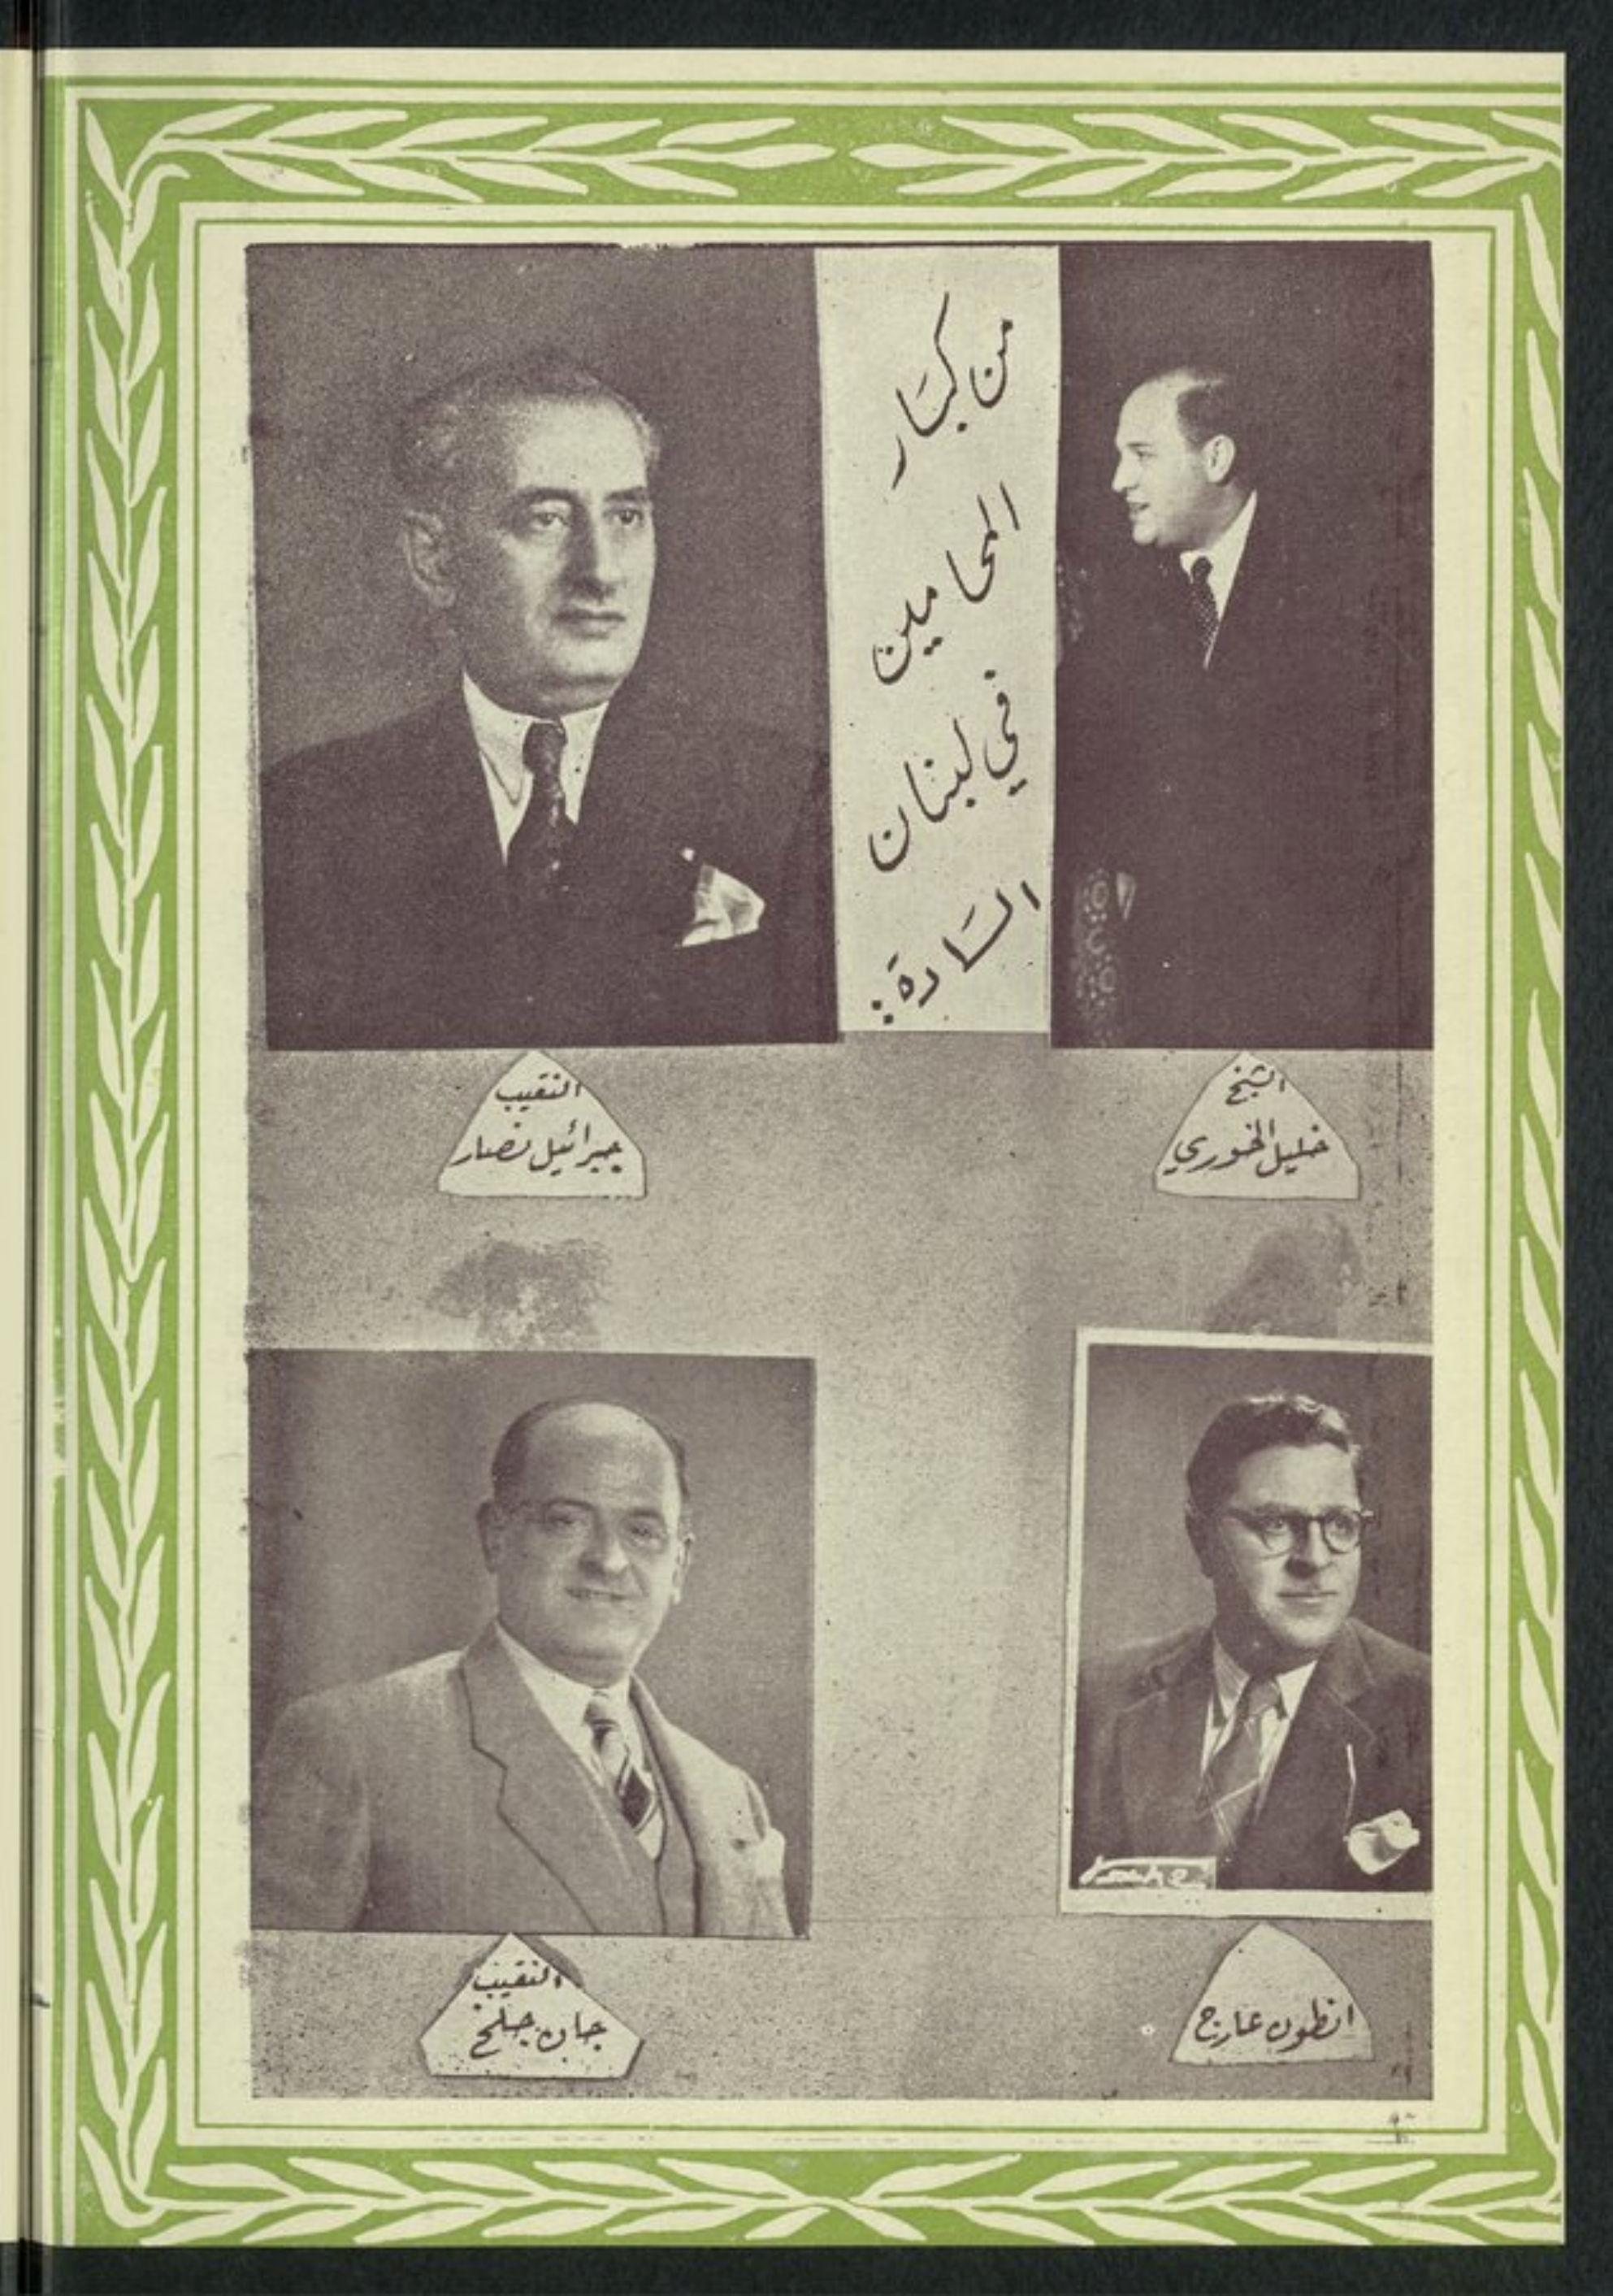 من كبَار
المحامين
في لبنان
السَادَة:
الشيخ
خليل الخوري
النقيب
جبرائيل نصار
انطون عارج
النقيب
جان جلخ